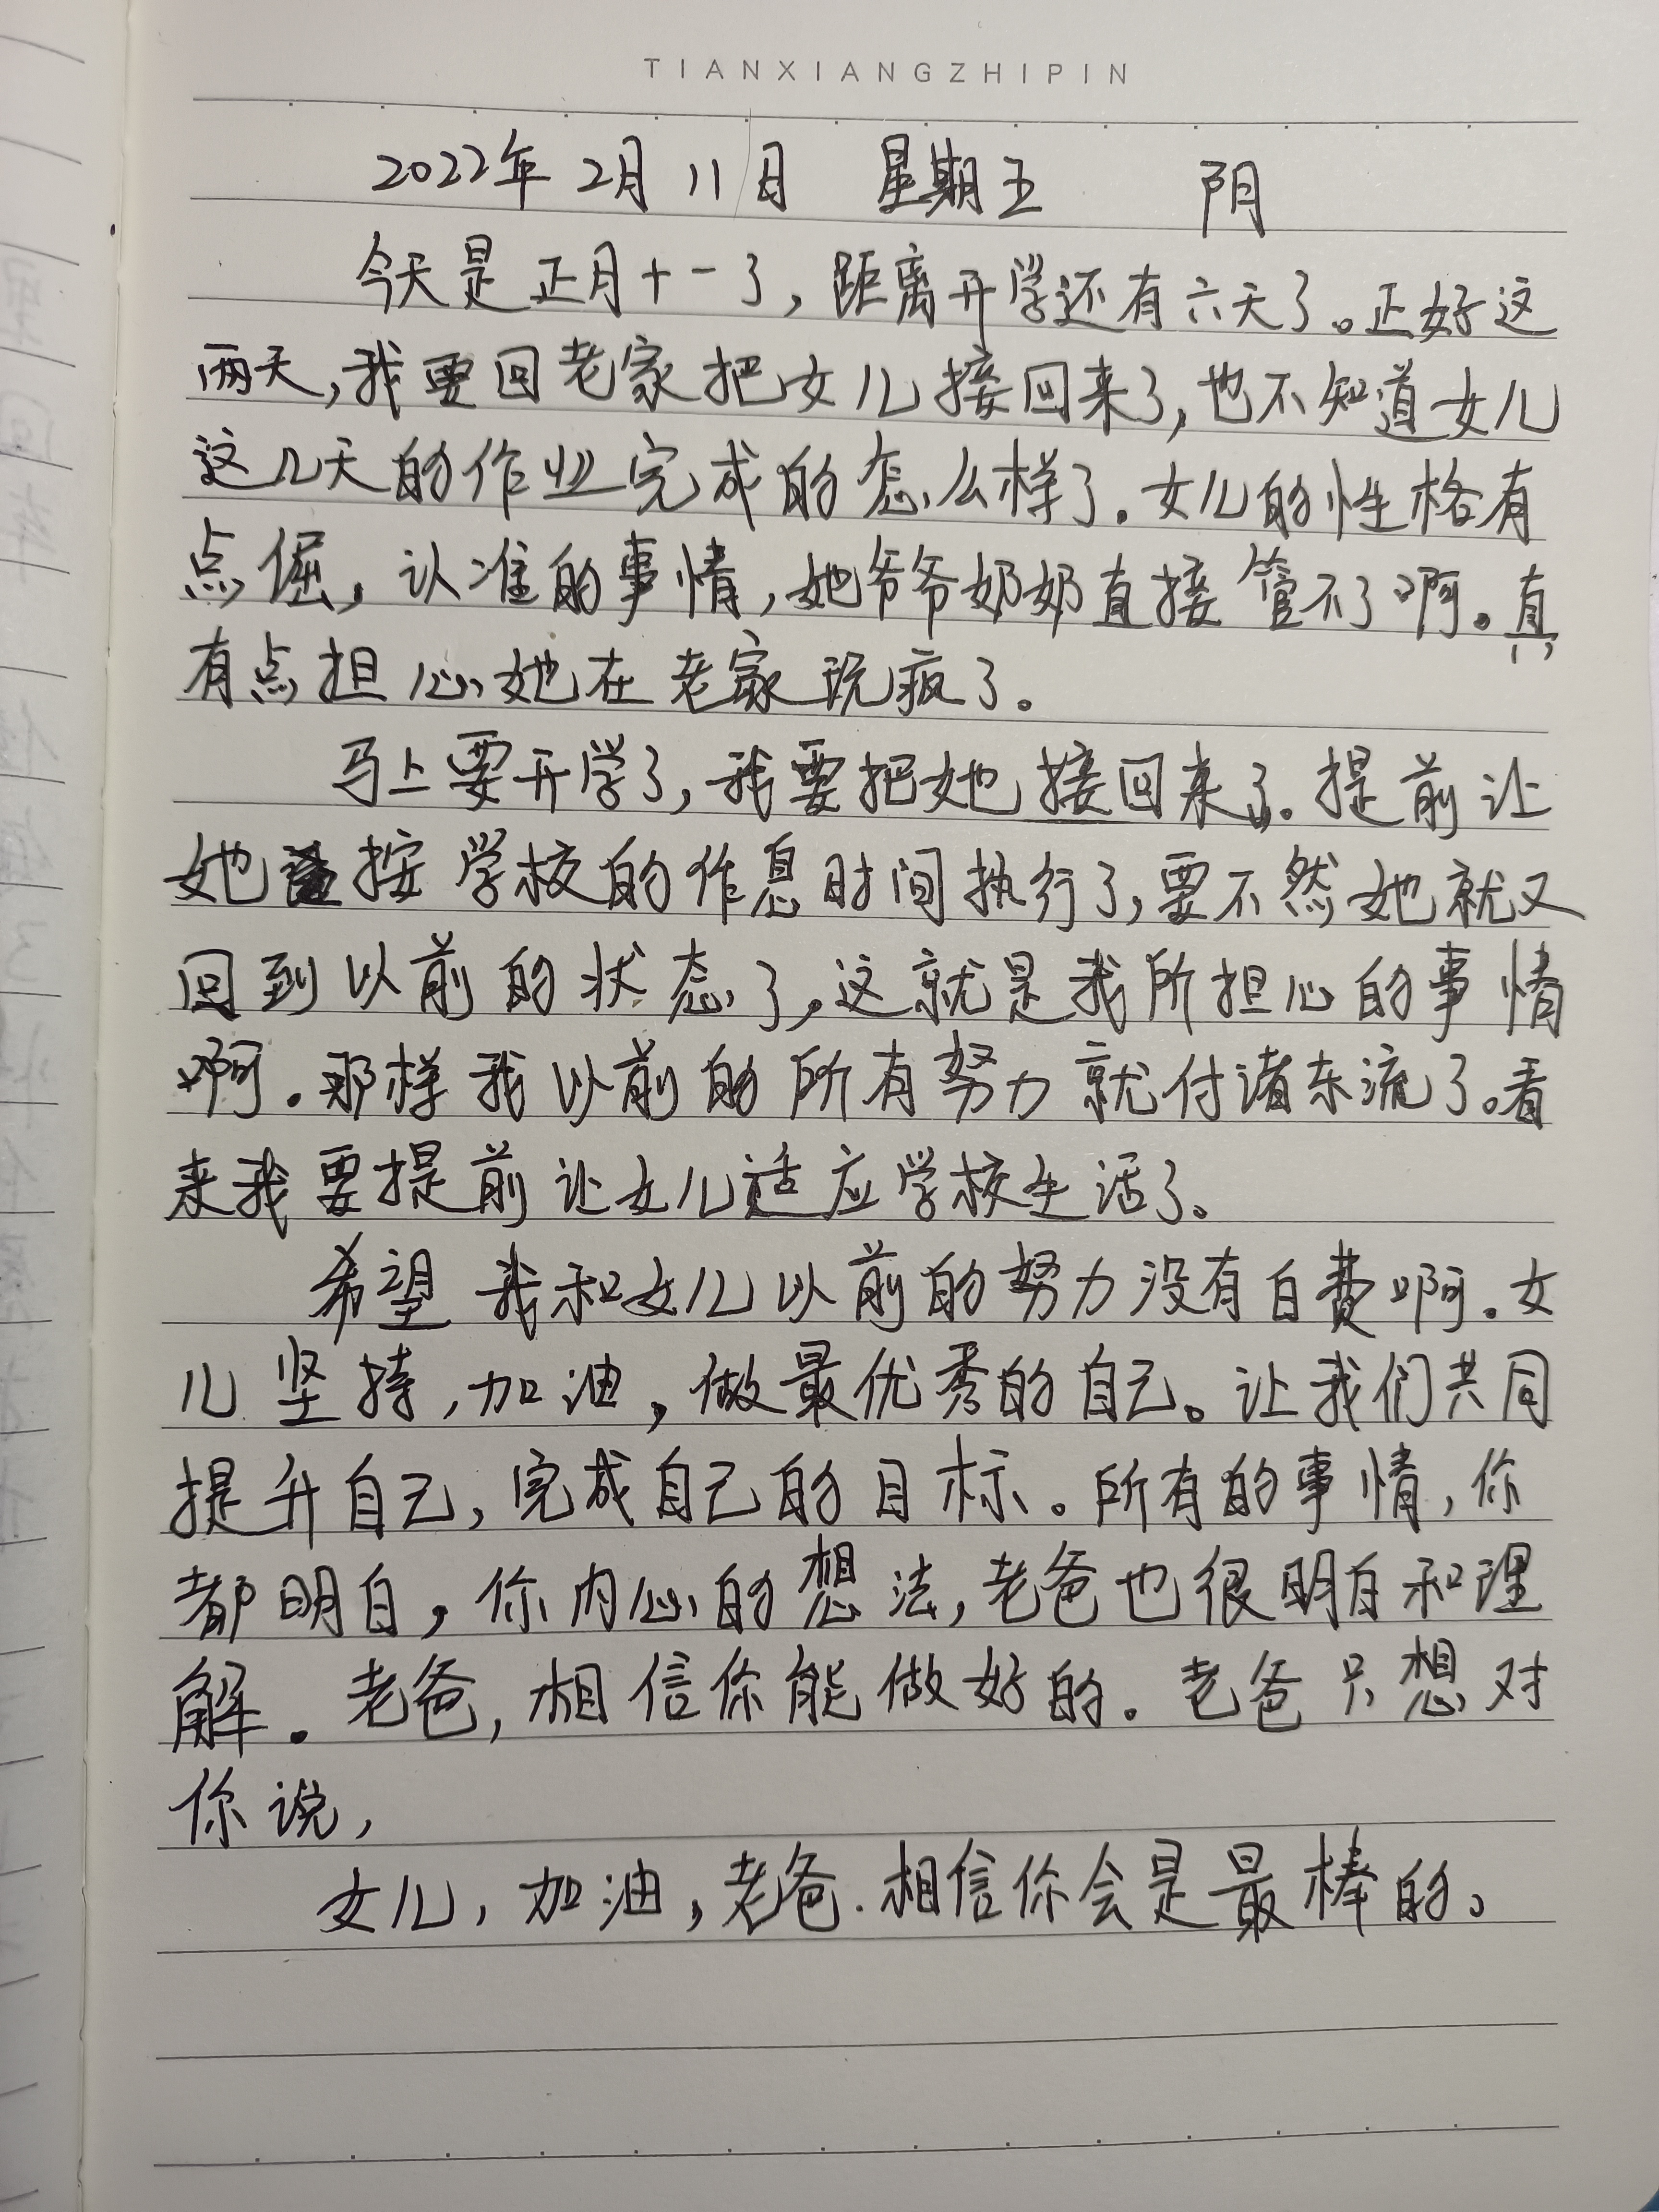 TIANXIANGZHIPIN
2022年2月11日 星期五 阴
今天是正月十一了，距离开学还有六天了。正好这
两天，我要回老家把女儿接回来了，也不知道女儿
这几天的作业完成的怎么样了。女儿的性格有
点倔，认准的事情，她爷爷奶奶直接管不了啊。真
有点担心她在老家玩疯了。
马上要开学了，我要把她接回来了。提前让
她按学校的作息时间执行了，要不然她就又
回到以前的状态了，这就是我所担心的事情
啊。那样我以前的所有努力就付诸东流了。看
来我要提前让女儿适应学校生活了。
希望我和女儿以前的努力没有白费啊。女
儿坚持，加油，做最优秀的自己。让我们共同
提升自己，完成自己的目标。所有的事情，你
都明白，你内心的想法，老爸也很明白和理
解。老爸，相信你能做好的。老爸只想对
你说，
女儿，加油，老爸.相信你会是最棒的。